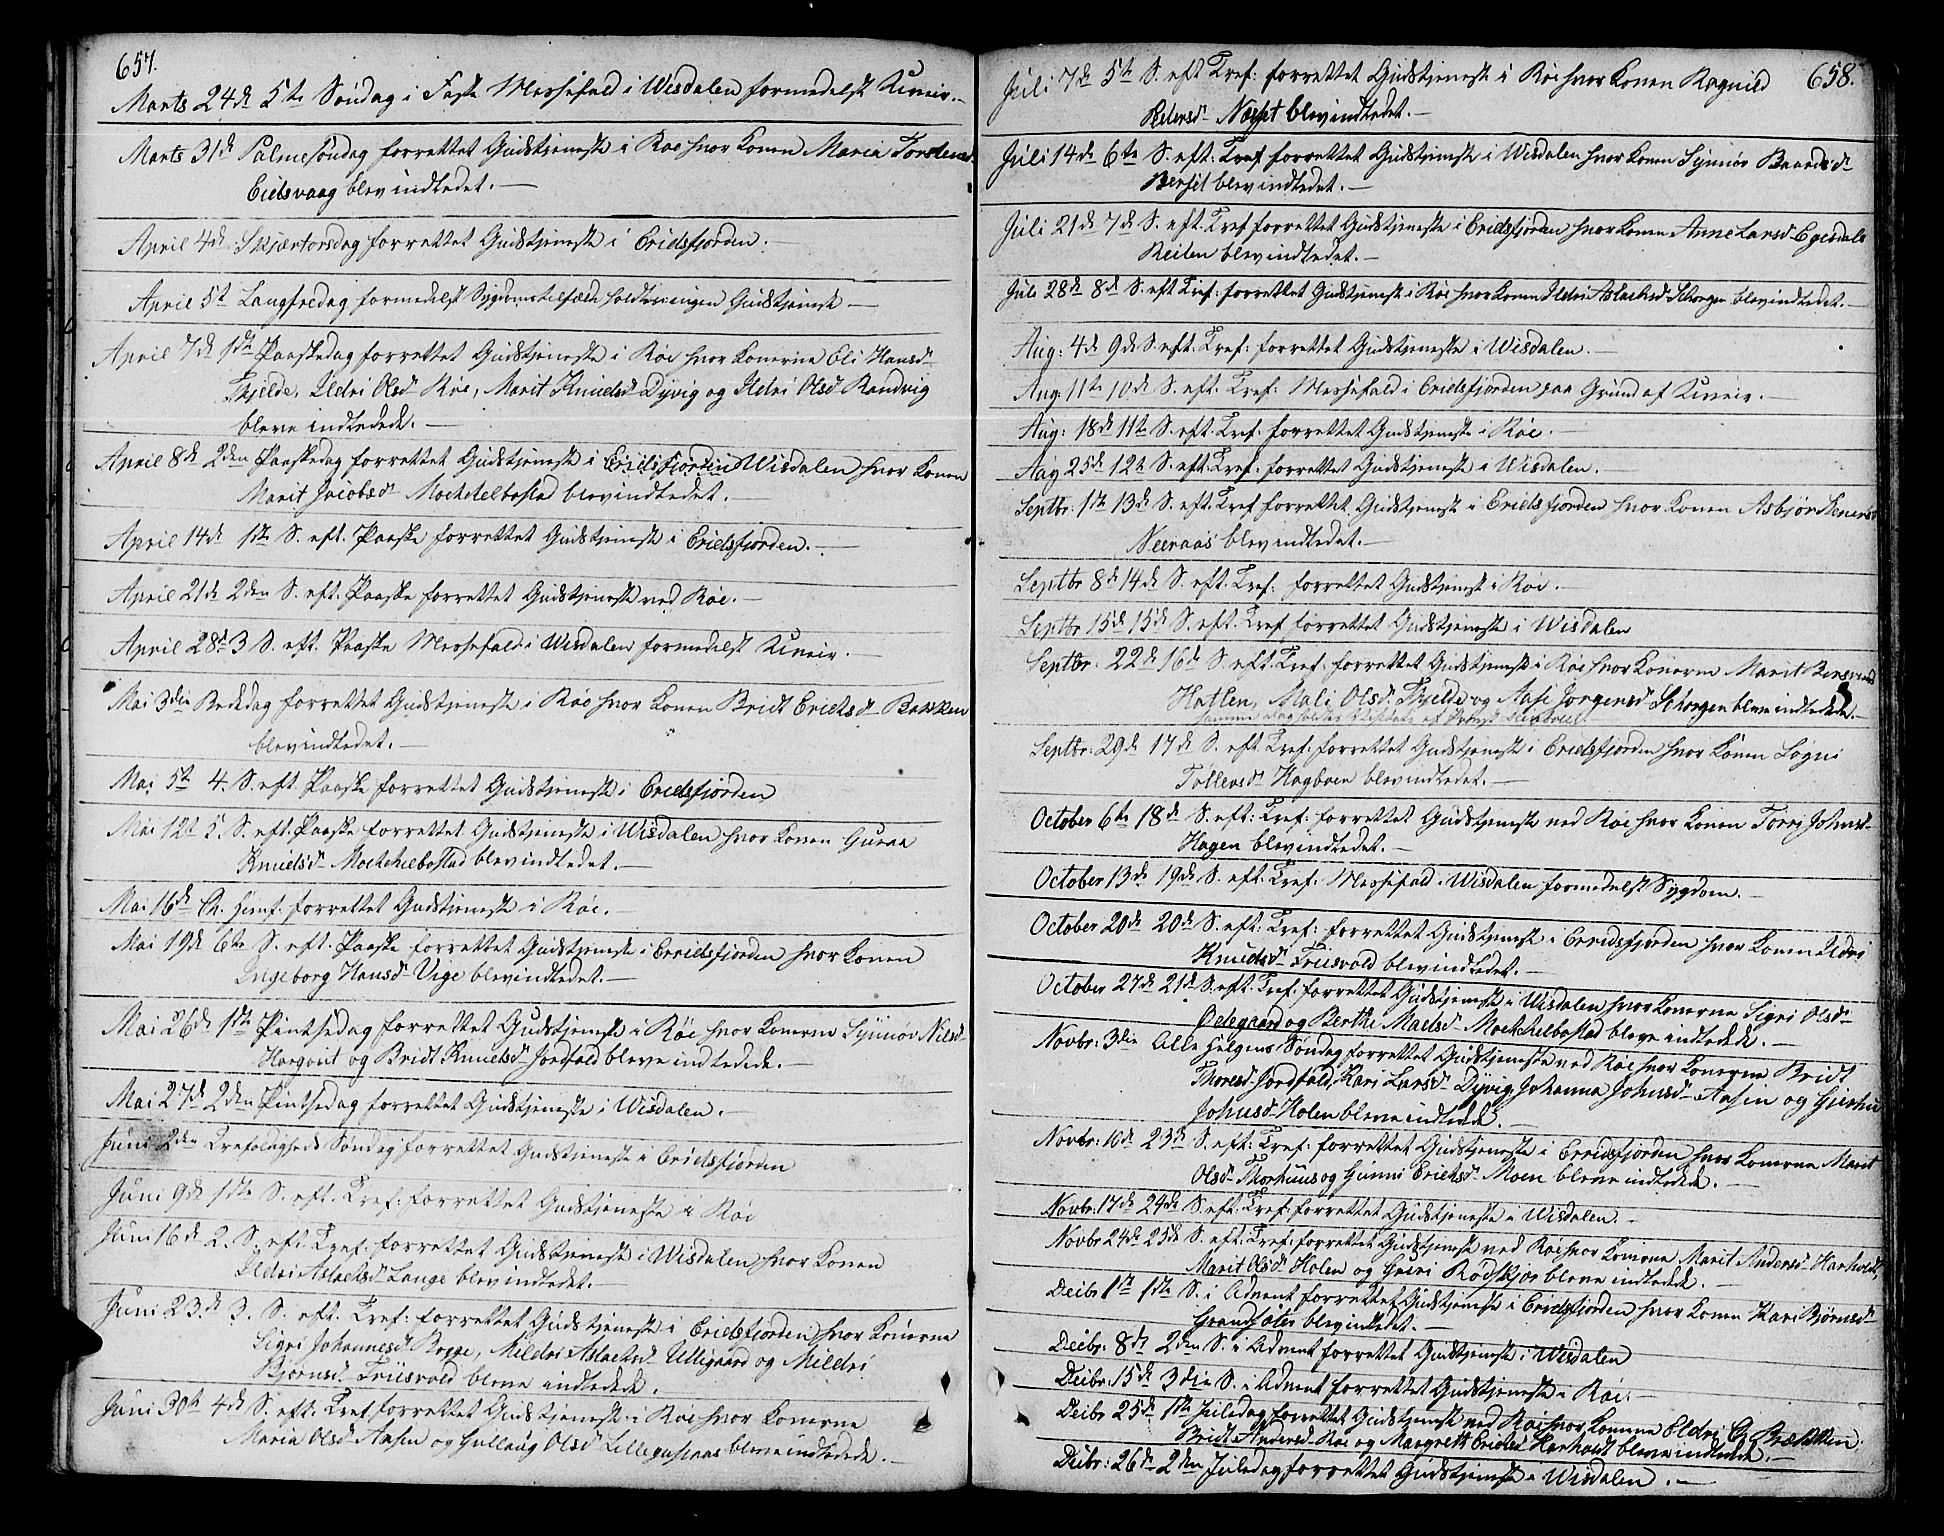 657.
Marts 24de 5te Søndag i Faste Messefald i Wisdalen formedelst Uveir.
Marts 31de Palmesøndag forrettet Gudstjeneste i Røe hvor Konen Maria Torstensd
Eidsvaag blev indledet.
April 4de Skjærtorsdag forrettet Gudstjeneste i Eridsfjorden.
April 5te Langfredag formedelst Sygdomstilfælde holdt ingen Gudstjeneste
April 7de 1ste Paaskedag forrettet Gudstjeneste i Røe hvor Konerne Eli Hansd
Fjelde, Ildri Olsd Røe, Marit Knudsd Dyvig og Ildri Olsd Randvig
bleve indledede.
April 8de 2den Paaskedag forrettet Gudstjeneste i Eridsfjorden Wisdalen hvor Konen
Marit Jacobsd Mochelbostad blev indledet.
April 14de 1ste S. eft. Paaske forrettet Gudstjeneste i Eridsfjorden.
April 21de 2den S. eft. Paaske forrettet Gudstjeneste ved Røe.
April 28de 3 S. eft. Paaske Messefald i Wisdalen formedelst Uveir.
Mai 3die Bededag forrettet Gudstjeneste i Røe hvor Konen Bridt Erichsd Bakken
blev indledet.
Mai 5te 4. S. eft. Paaske forrettet Gudstjeneste i Eridsfjorden
Mai 12te 5. S. eft. Paaske forrettet Gudstjeneste i Wisdalen hvor Konen Guraa
Knudsd Mochelbostad blev indledet.
Mai 16de Chr. Himf. forrettet Gudstjeneste i Røe.
Mai 19de 6te S. eft. Paaske forrettet Gudstjeneste i Erridsfjorden hvor Konen
Ingeborg Hansd Uige blev indledet.
Mai 26de 1ste Pintsedag forrettet Gudstjeneste i Røe hvor Konerne Synnøv Nilsd
Hargout og Bridt Knudsd Jordfald bleve indledede.
Mai 27de 2den Pintsedag forrettet Gudstjeneste i Wisdalen.
Juni 2den Trefoldigheds Søndag forrettet Gudstjeneste i Eridsfjorden
Juni 9de 1ste S. eft. Tref: forrettet Gudstjeneste i Røe
Juni 16de 2. S. eft. Tref: forrettet Gudstjeneste i Wisdalen hvor Konen
Ildri Aslachsd Lange blev indledet.
Juni 23de 3. S. eft. Tref: forrettet Gudstjeneste i Eridsfjorden hvor Konerne
Sigri Johannesd Bogge, Mildri Aslachsd Utligaard og Mildri
Bjørnsd Triisvold bleve indledede.
Juni 30te 4de S. eft. Tref forrettet Gudstjeneste i Røe hvor Konerne
Maria Olsd Aasen og Gullaug Olsd bleve indledede.
658.
Juli 7de 5te S. eft Tref: forrettet Gudstjeneste i Røe hvor Konen Ragnild
Petersd Næsset blev indledet.
Juli 14de 6te S. eft: Tref forrettet Gudstjeneste i Wisdalen hvor Konen Synnøv Baardsd
Berset blev indledet.
Juli 21de 7de S. eft. Tref forrettet Gudstjeneste i Eridsfjorden hvor Konen Anne Larsd Egisdals
Reiten blev indledet.
Juli 28de 8de S. eft Tref: forrettet Gudstjeneste i Røe hvor Konen Ildri Aslachsd Schorgen blev indledet.
Aug: 4de 9de S. eft. Tref: forrettet Gudstjeneste i Wisdalen.
Aug: 11te 10de S. eft. Tref: Messefald i Eridsfjorden paa Grund af Uveir.
Aug: 18de 11te S. eft. Tref. forrettet Gudstjeneste i Røe.
Aug 25de 12te S. eft. Tref. forrettet Gudstjeneste i Wisdalen.
Septbr: 1ste 13de S. eft. Tref forrettet Gudstjeneste i Eridsfjorden hvor Konen Asbjør Stenersd
Neeraas blev indledet.
Septbr 8de 14de S. eft. Tref: forrettet Gudstjeneste i Røe.
Septbr 15de 15de S. eft. Tref forrettet Gudstjeneste i Wisdalen
Septbr: 22de 16de S. eft. Tref: forrettet Gudstjeneste i Røe hvor Konerne Marit
Hatlen, Mali Olsd Fjelde og Aase Jørgensd Schorgen bleve indledede.
samme Dag holdtes Visitats af
Septbr: 29de 17de S. eft. Tref: forrettet Gudstjeneste i Eridsfjorden hvor Konen Sigri
Tollevsd Hagboen blev indledet.
October 6te 18de S. eft: Tref: forrettet Gudstjeneste ved Røe hvor Konen Torri Johnsd
Hagen blev indledet.
October 13de 19de S. eft. Tref. Messefald i Wisdalen formedelst Sygdom.
October 20de 20de S. eft. Tref: forrettet Gudstjeneste i Erridsfjorden hvor Konen Ildri
Knudsd Triisvold blev indledet.
October 27de 21de S. eft. Tref: forrettet Gudstjeneste i Wisdalen hvor Konerne Sigri Olsd
Ødegaard og Berthe Madsd Mochelbostad bleve indledede.
Novbr: 3die Alle Helgens Søndag forrettet Gudstjeneste ved Røe hvor Konerne Bridt
Thoresd Jordfald, Kari Larsd Dyvig, Johanna Johnsd Aasen og
Johnsd Holen bleve indledede.
Novbr: 10de 23de S. eft: Tref: forrettet Gudstjeneste i Erridsfjorden hvor Konerne Marit
Olsd Thorhuus og Gunni Erichsd Moen bleve indledede.
Novbr: 17de 24de S. eft: Tref: forrettet Gudstjeneste i Wisdalen.
Novbr 24de 25de S. eft: Tref: forrettet Gudstjeneste ved Røe hvor Konerne Marit Andersd
Marit Olsd Holen og Guri Rødskjør bleve indledede.
Decbr 1ste 1ste S. i Advent forrettet Gudstjeneste i Eridsfjorden hvor Konen Kari Bjørnsd
blev indledet.
Decbr. 8de 2den S. i Advent forrettet Gudstjeneste i Wisdalen
Decbr. 15de 3die S. i Advent forrettet Gudstjeneste i Røe.
Decbr 25de 1ste Juledag forrettet Gudstjeneste ved Røe hvor Konerne Eldri Chr Brækken
Bridt Andersd Roe og Margrett Erichsd bleve indledede.
Decbr: 26de 2den Juledag forrettet Gudstjeneste i Wisdalen.